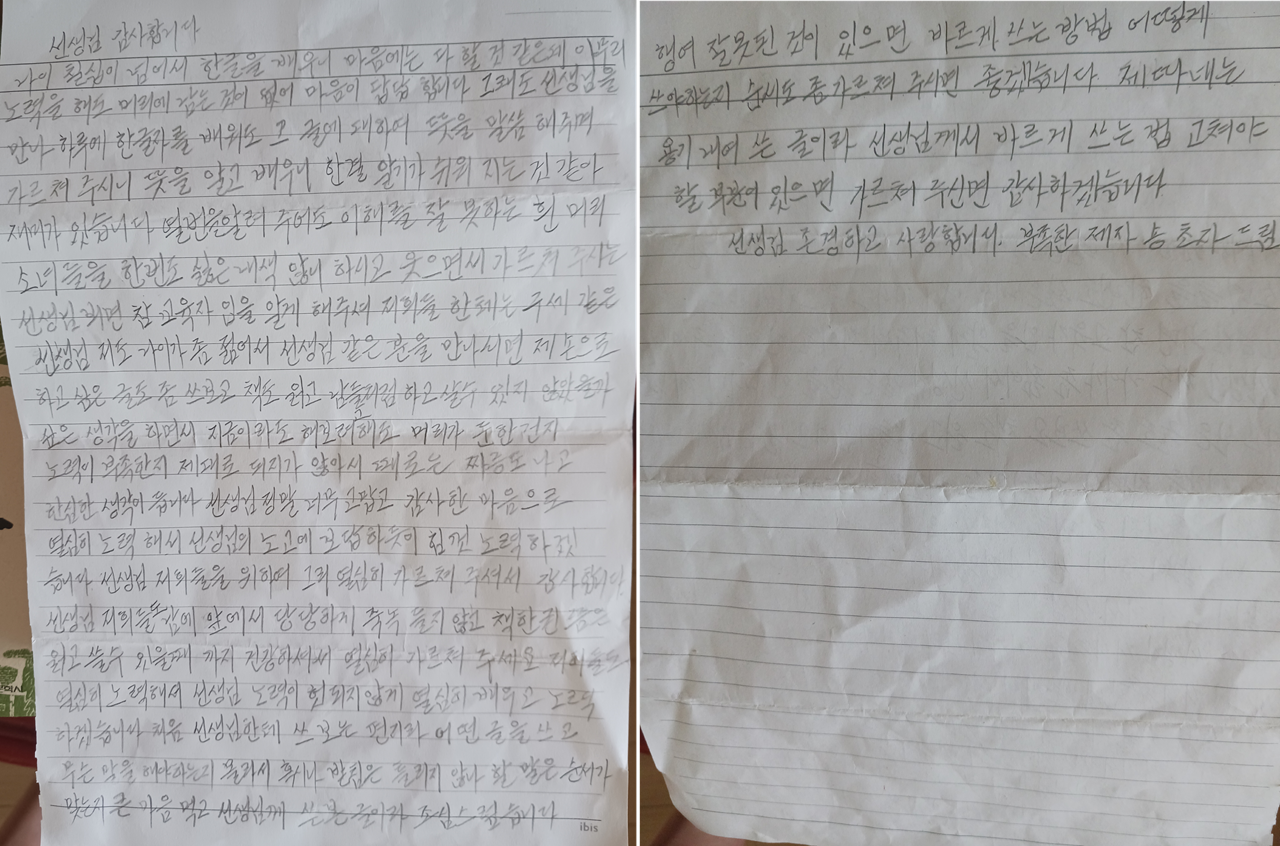 선생님 감사합니다
나이 칠십이 넘어서 한글을 배우니 마음에는 다 할 것 같은데 아무리
노력을 해도 머리에 남는 것이 없어 마음이 답답 합니다 그래도 선생님을
만나 하루에 한글자를 배워도 그 글에 대하여 뜻을 말씀 해주며
가르쳐 주시니 뜻을 알고 배우니 한결 알기가 쉬워 지는 것 같아
재미가 있습니다 열번을알려 주어도 이해를 잘 못하는 흰 머리
소녀들을 한번도 싫은 내색 않니 하시고 웃으면서 가르쳐 주시는
선생님 참 교육자 임을 알게 해주셔 저희들 한테는 구세 같은
선생님 저도 나이가 좀 젊어서 선생님 같은 분을 만나시면 제 손으로
하고 싶은 글도 좀 쓰보고 책도 읽고 남들처럼 하고 살수 있지 않았을가
싶은 생각을 하면서 지금이라도 해보려해도 머리가 둔한건지
노력이 부족한지 제대로 되지가 않아서 때로는 짜증도 나고
한심한 생각이 듭니다 선생님 정말 너무 고맙고 감사한 마음으로
열심히 노력 해서 선생님의 노고에 보답하듯이 힘껏 노력하겠
습니다 선생님 저희들을 위하여 그리 열심히 가르쳐 주셔서 감사합니다
선생님 저희들 앞에서 당당하지 죽눅 들지않고 책한권
읽고 쓸수 있을때 까지 건강하셔서 열심히 가르쳐 주세요 저희들도
열심히 노력해서 선생님 노력이 헛되지않게 열심히 배우고 노르덕
하겠습니다 처음 선생님한테 쓰보는 편지라 어떤 글을 쓰고
무슨 말을 해야하는지 몰라서 혹시나 받침은 틀리지 않나 할 말은 순서가
맞는지 큰 마음 먹고 선생님께 쓰는 글이라 조심스럽습니다
ibis
행여 잘못된 것이 있으면 바르게 쓰는 방법 어떻게
쓰야하는지 순서도 좀가르쳐 주시면 좋겠습니다. 제따네는
용기 내어 쓴 글이라 선생님께서 바르게 쓰는 법 고쳐야
할 부관이 있으면 가르쳐 주신면 감사하겠습니다
선생님 존경하고 사랑합니다. 부족한 제자 송 초자 드림